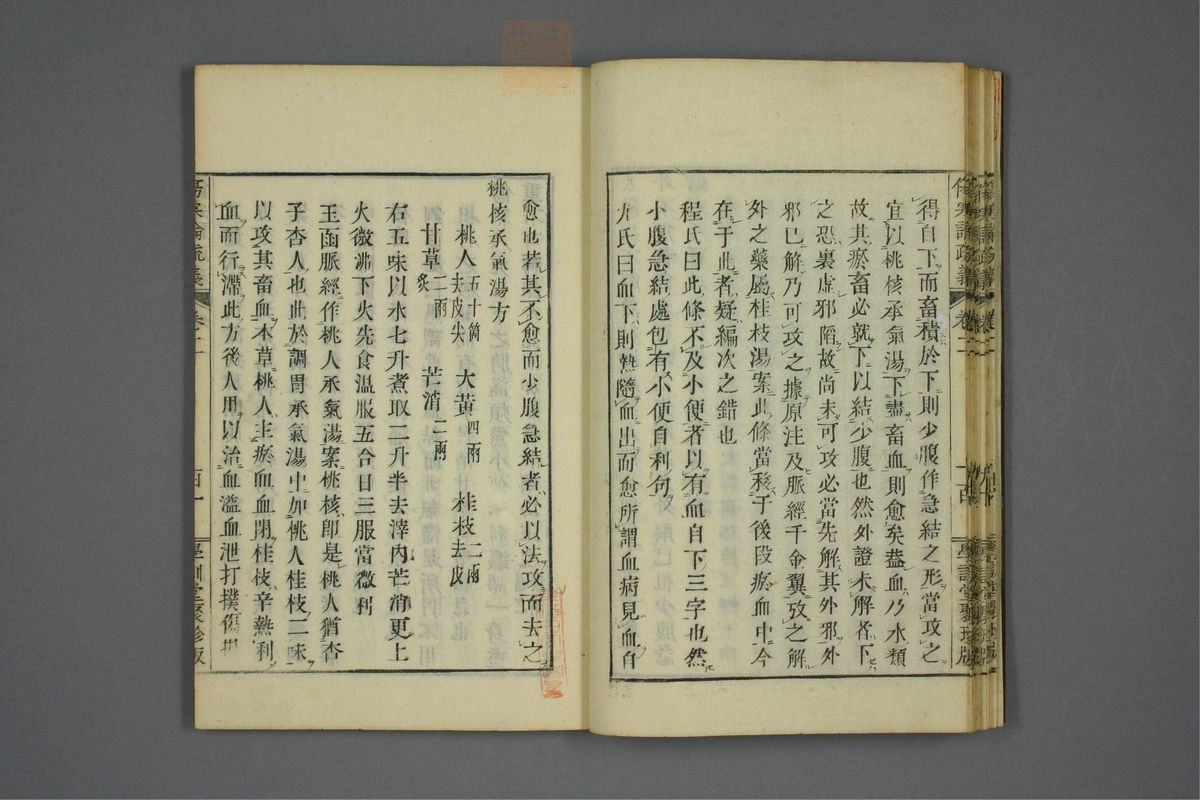 得自下而畜積於下則少腹作急結之形當攻之
宜以桃核承氣湯下盡畜血則愈矣蓋血乃水類
故其瘀畜必就下以結少腹也然外證未解者下
之恐裏虛邪陷故尚未可攻必當先解其外邪外
邪已解乃可攻之據原注及脈經千金翼攷之解
外之藥屬桂枝湯案此條當移于後段瘀血中今
在于此者疑編次之錯也
程氏曰此條不及小便者以有血自下三字也然
小腹急結處包有小便自利句
方氏曰血下則熱隨血出而愈所謂血病見血自
卷二
愈也若其不愈而少腹急結者必以法攻而去之
桃核承氣湯方
桃人五十箇去皮尖 大黃四兩 桂枝二兩去皮
甘草二兩炙 芒消二兩
右五味以水七升煮取二升半去滓內芒消更上
火微沸下火先食溫服五合日三服當微利
玉函脈經作桃人承氣湯案桃核卽是桃人猶杏
子杏人也此於調胃承氣湯中加桃人桂枝二味
以攻其畜血本草桃人主瘀血血閉桂枝辛熱利
血而行滯此方後人用以治血溢血泄打撲傷損
卷二